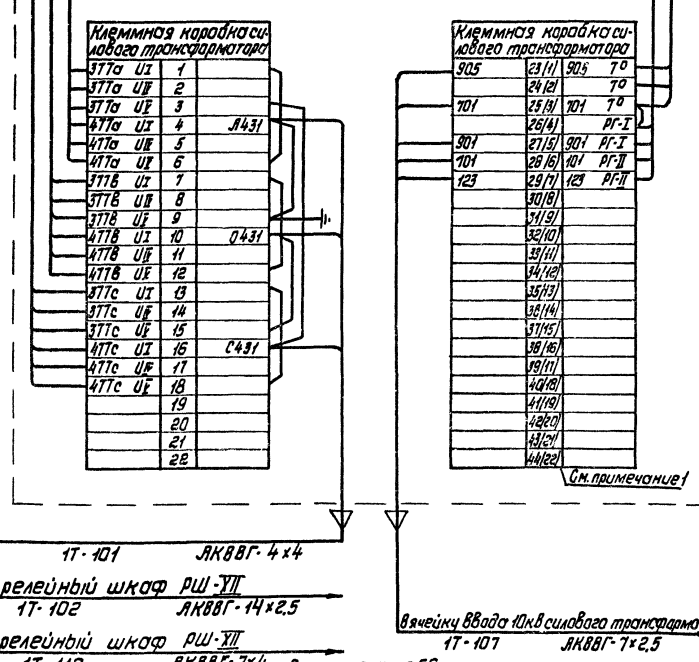 Клеммная коробка си-
лового трансформатора
3ТТа UI 1
3ТТа UIV 2
3ТТа UV 3
4ТТа UI 4 Л431
4ТТа UIV 5
4ТТа UV 6
3ТТв UI 7
3ТТв UIV 8
3ТТв UV 9
4ТТв UI 10 0431
4ТТв UIV 11
4ТТв UV 12
3ТТс UI 13
3ТТс UIV 14
3ТТс UV 15
4ТТс UI 16 С431
4ТТс UIV 17
4ТТс UV 18
19
20
21
22
Клеммная коробка си-
лового трансформатора
905 23/1/ 905 Т°
24/2/ Т°
701 25/3/ 701 Т°
26/4/ РГ-I
901 27/5/ 901 РГ-I
701 28/6/ 101 РГ-II
123 29/7/ 123 РГ-II
30/8/
31/9/
32/10/
33/11/
34/12/
35/13/
36/14/
37/15/
38/16/
39/17/
40/18/
41/19/
42/20/
43/21/
44/22/
См. примечание 1
1Т-101 АКВВГ-4х4
релейный шкаф РШ-XII
1Т-102 АКВВГ-14х2,5
релейный шкаф РШ-XII
В ячейку ввода 10кв силового трансформа
1Т-107 АКВВГ-7х2,5